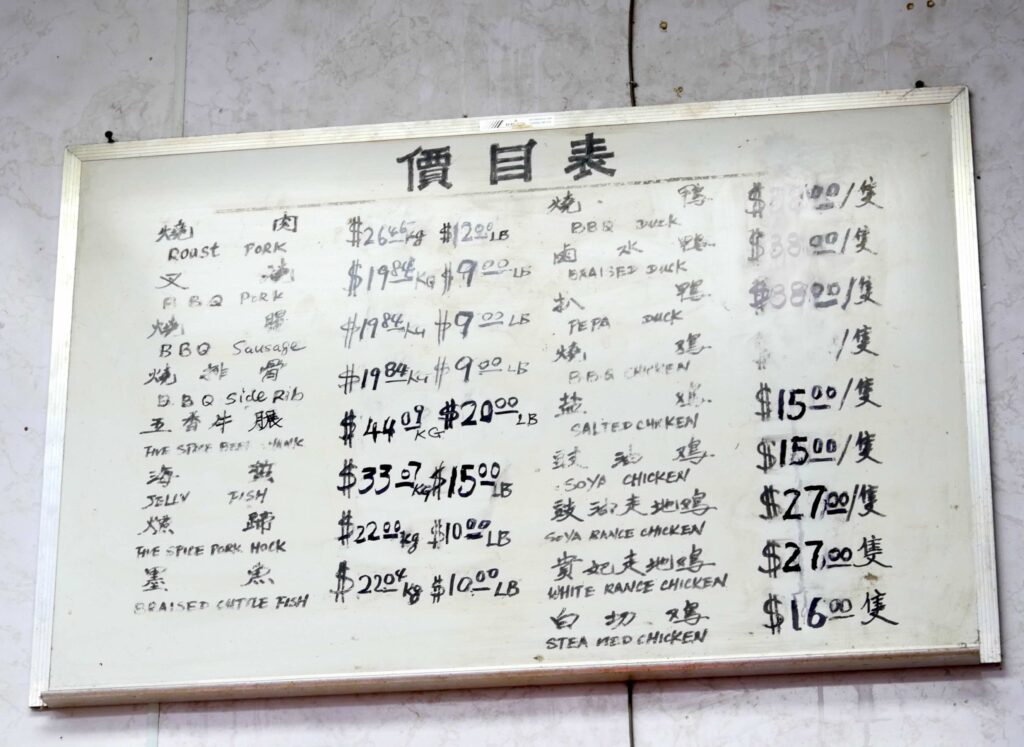 價目表
燒 肉 $26.45 kg $12.00 LB
ROAST PORK
叉 燒 $19.84 KG $9.00 LB
BBQ PORK
燒 腸 $19.84 KG $9.00 LB
BBQ Sausage
燒排骨 $19.84 KG $9.00 LB
BBQ Side Rib
五香牛𦟌 $44.09 KG $20.00 LB
FIVE SPICE BEEF
海 蜇 $33.07 KG $15.00 LB
JELLY FISH
燻 蹄 $22.00 kg $10.00 LB
FIVE SPICE PORK HOCK
墨 魚 $22.04 kg $10.00 LB
BRAISED CUTTLE FISH
燒 鴨 /隻
BBQ DUCK
鹵水鴨 $38.00/隻
BRAISED DUCK
扒 鴨 $38.00/隻
PEPA DUCK
燒 鷄 /隻
BBQ CHICKEN
盐 鷄 $15.00/隻
SALTED CHICKEN
豉油鷄 $15.00/隻
SOYA CHICKEN
豉油走地鷄 $27.00/隻
SOYA RANCE CHICKEN
貴妃走地鷄 $27.00 隻
WHITE RANCE CHICKEN
白切鷄 $16.00 隻
STEAMED CHICKEN